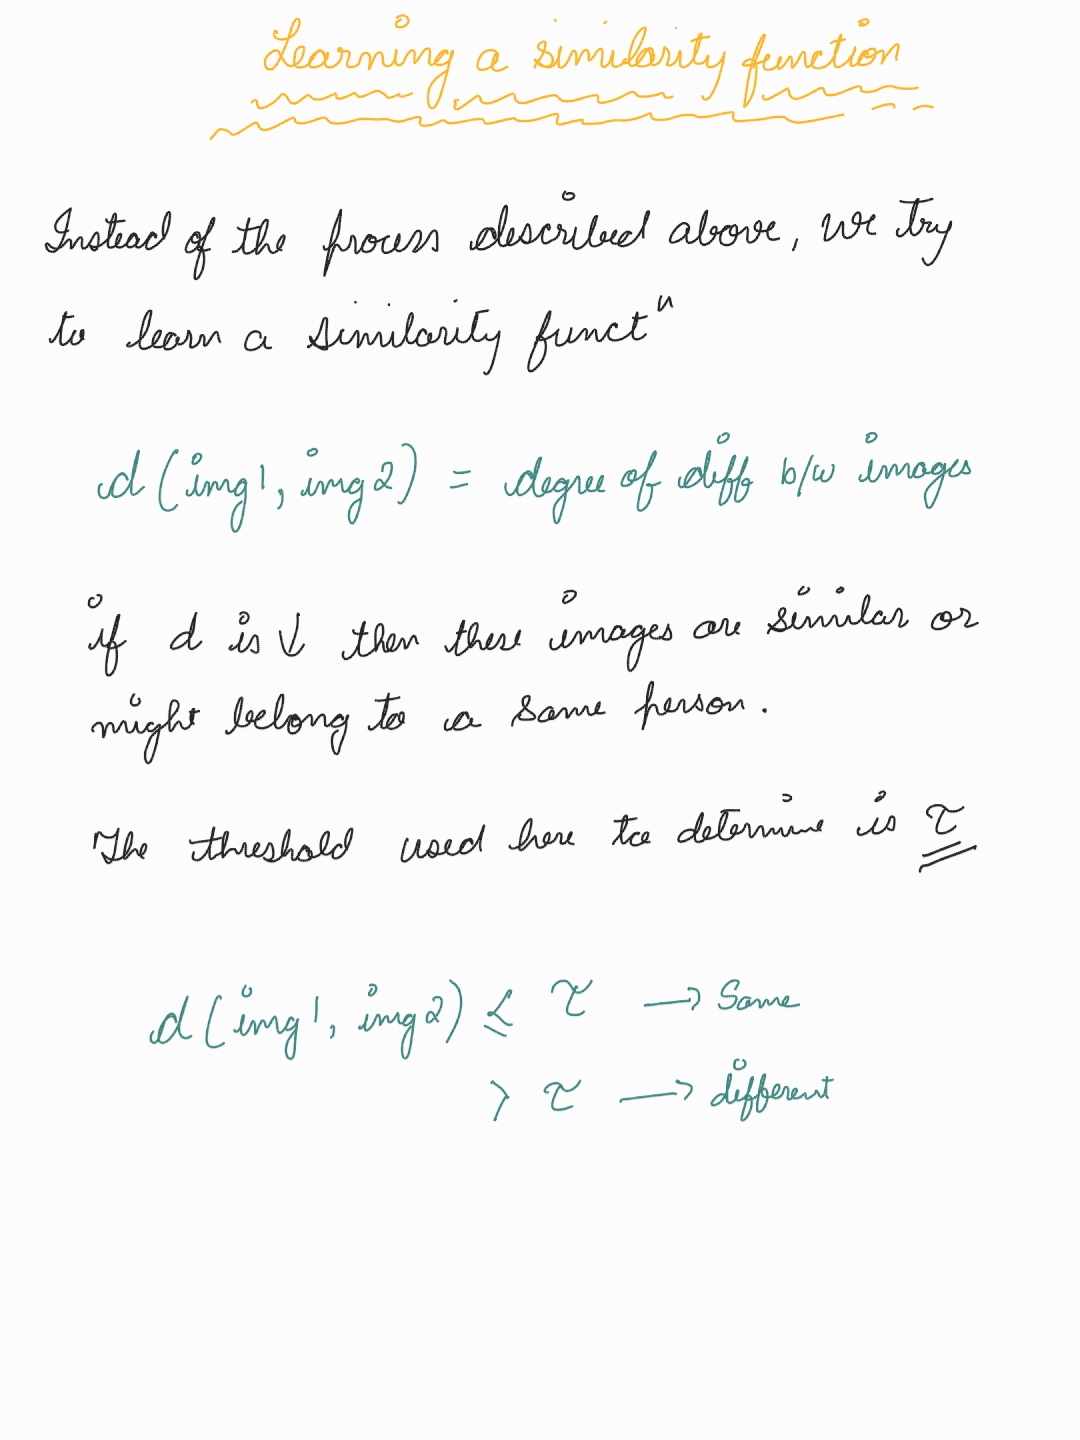 Learning a similarity function
Instead of the process described above, we try
to learn a similarity functⁿ
d(img1, img2) = degree of diff b/w images
if d is ↓ then these images are similar or
might belong to a same person.
The threshold used here to determine is τ
d(img1, img2) ≤ τ → Same
> τ → different